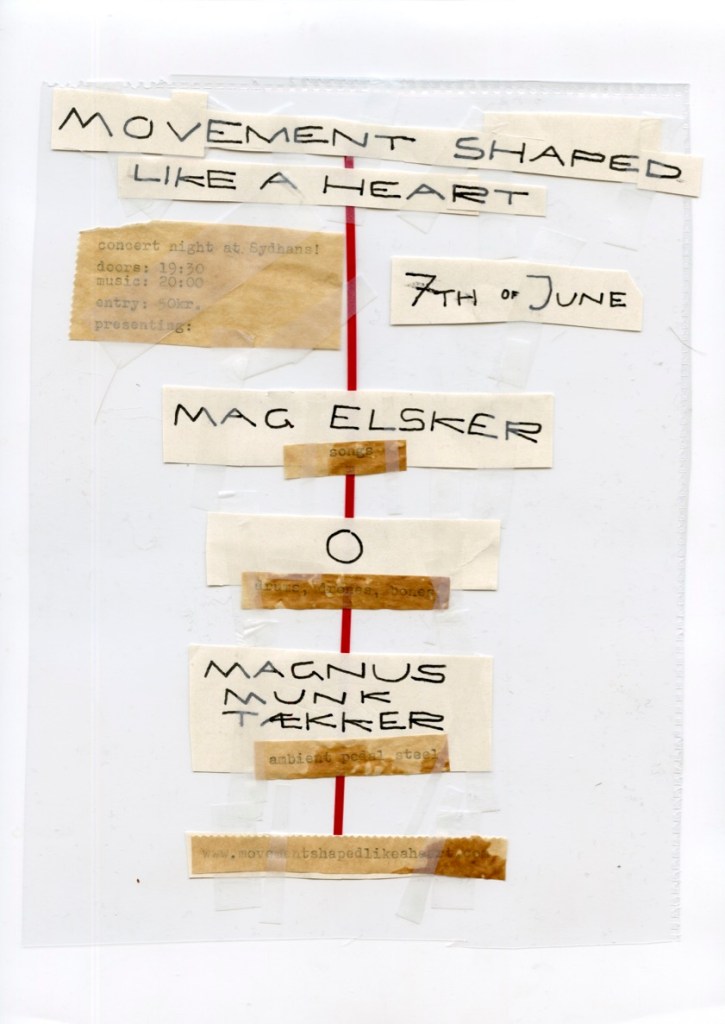 MOVEMENT SHAPED
LIKE A HEART
concert night at Sydhans!
doors: 19:30
music: 20:00
entry: 50kr.
presenting:
7TH OF JUNE
MAG ELSKER
songs
O
drums, drones, bones
MAGNUS
MUNK
TÆKKER
ambient pedal steel
www.movementshapedlikeaheart.com